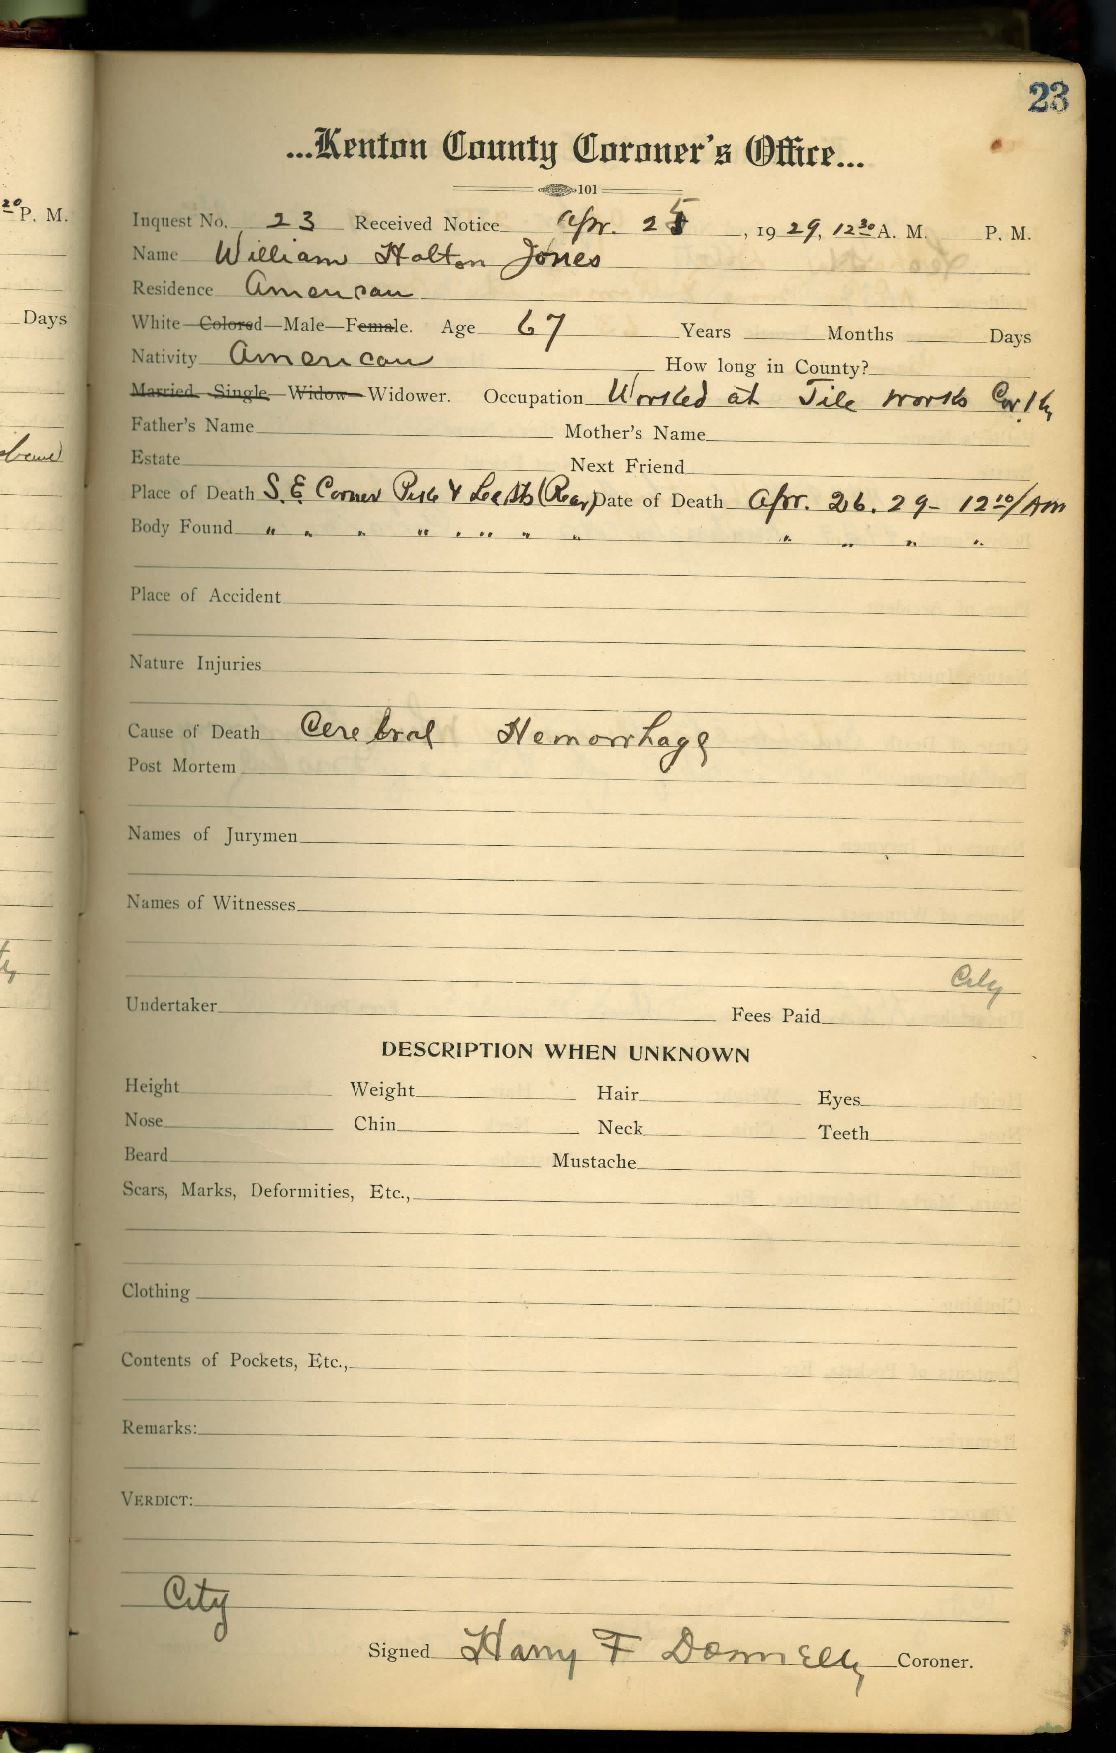 23
...Kenton County Coroner's Office...
101
Inquest No. 23 Received Notice Apr. 25, 1929, 12 30 A. M. P. M.
Name William Holton Jones
Residence American
White—Colored—Male—Female. Age 67 Years Months Days
Nativity American How long in County?
Married Single Widow Widower. Occupation Worked at Tile works Cov. Ky
Father's Name Mother's Name
Estate Next Friend
Place of Death S. E. Corner Pike & Lee Sts (Rear) Date of Death Apr. 26. 29 - 12 10/AM
Body Found " " " " " " " " " " " "
Place of Accident
Nature Injuries
Cause of Death Cerebral Hemorrhage
Post Mortem
Names of Jurymen
Names of Witnesses
City
Undertaker Fees Paid
DESCRIPTION WHEN UNKNOWN
Height Weight Hair Eyes
Nose Chin Neck Teeth
Beard Mustache
Scars, Marks, Deformities, Etc.,
Clothing
Contents of Pockets, Etc.,
Remarks:
VERDICT:
City
Signed Harry F Donnelly Coroner.
20 P. M.
Days